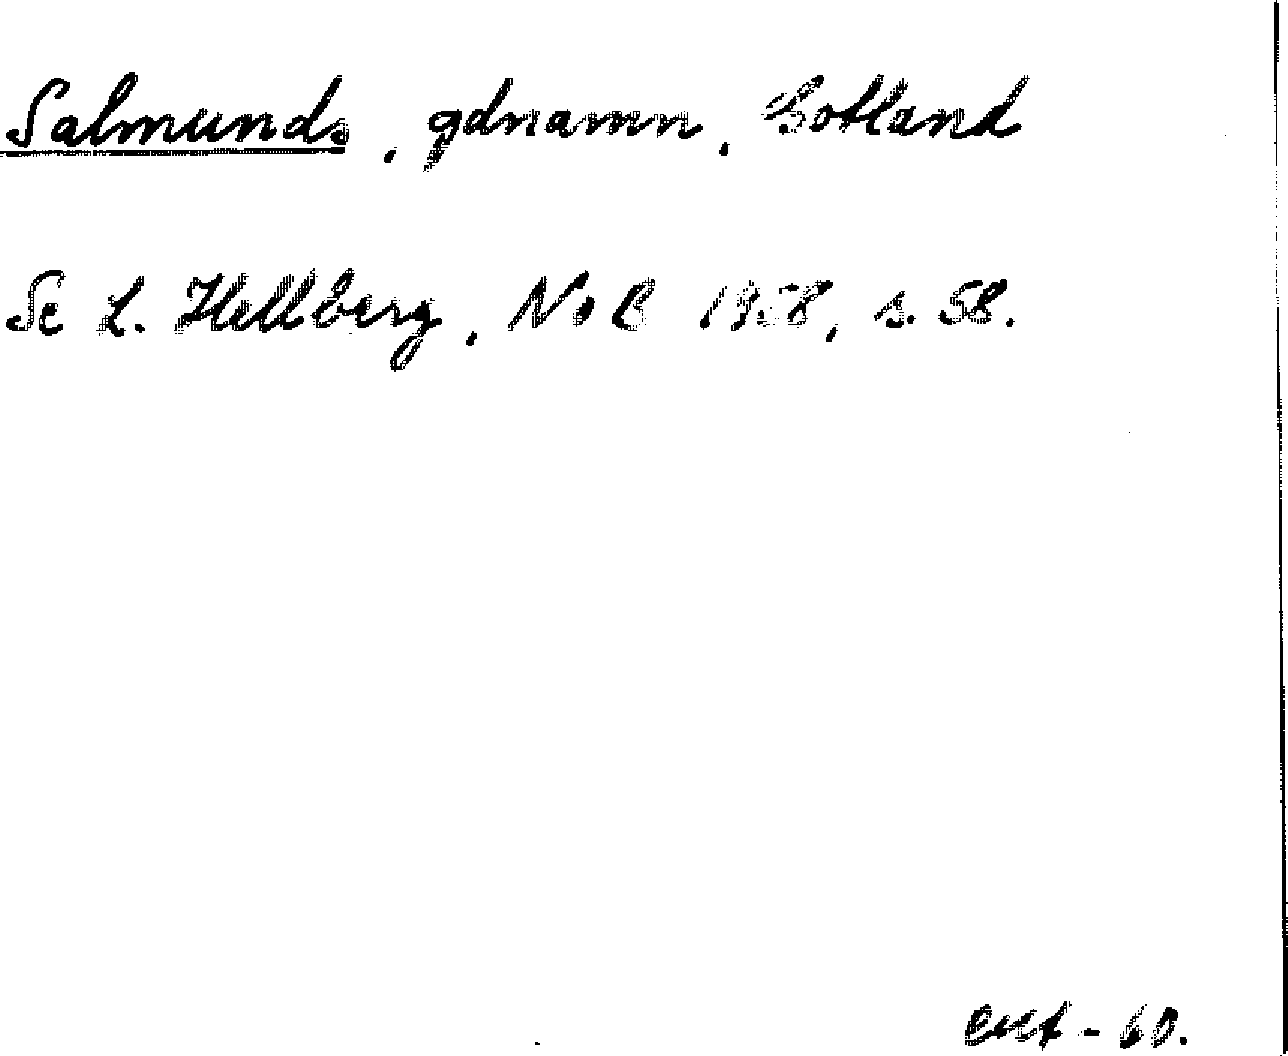 Salmunds, gdnamn, Gotland
Se L. Hellberg, NoB 1958, s. 58.
-60.